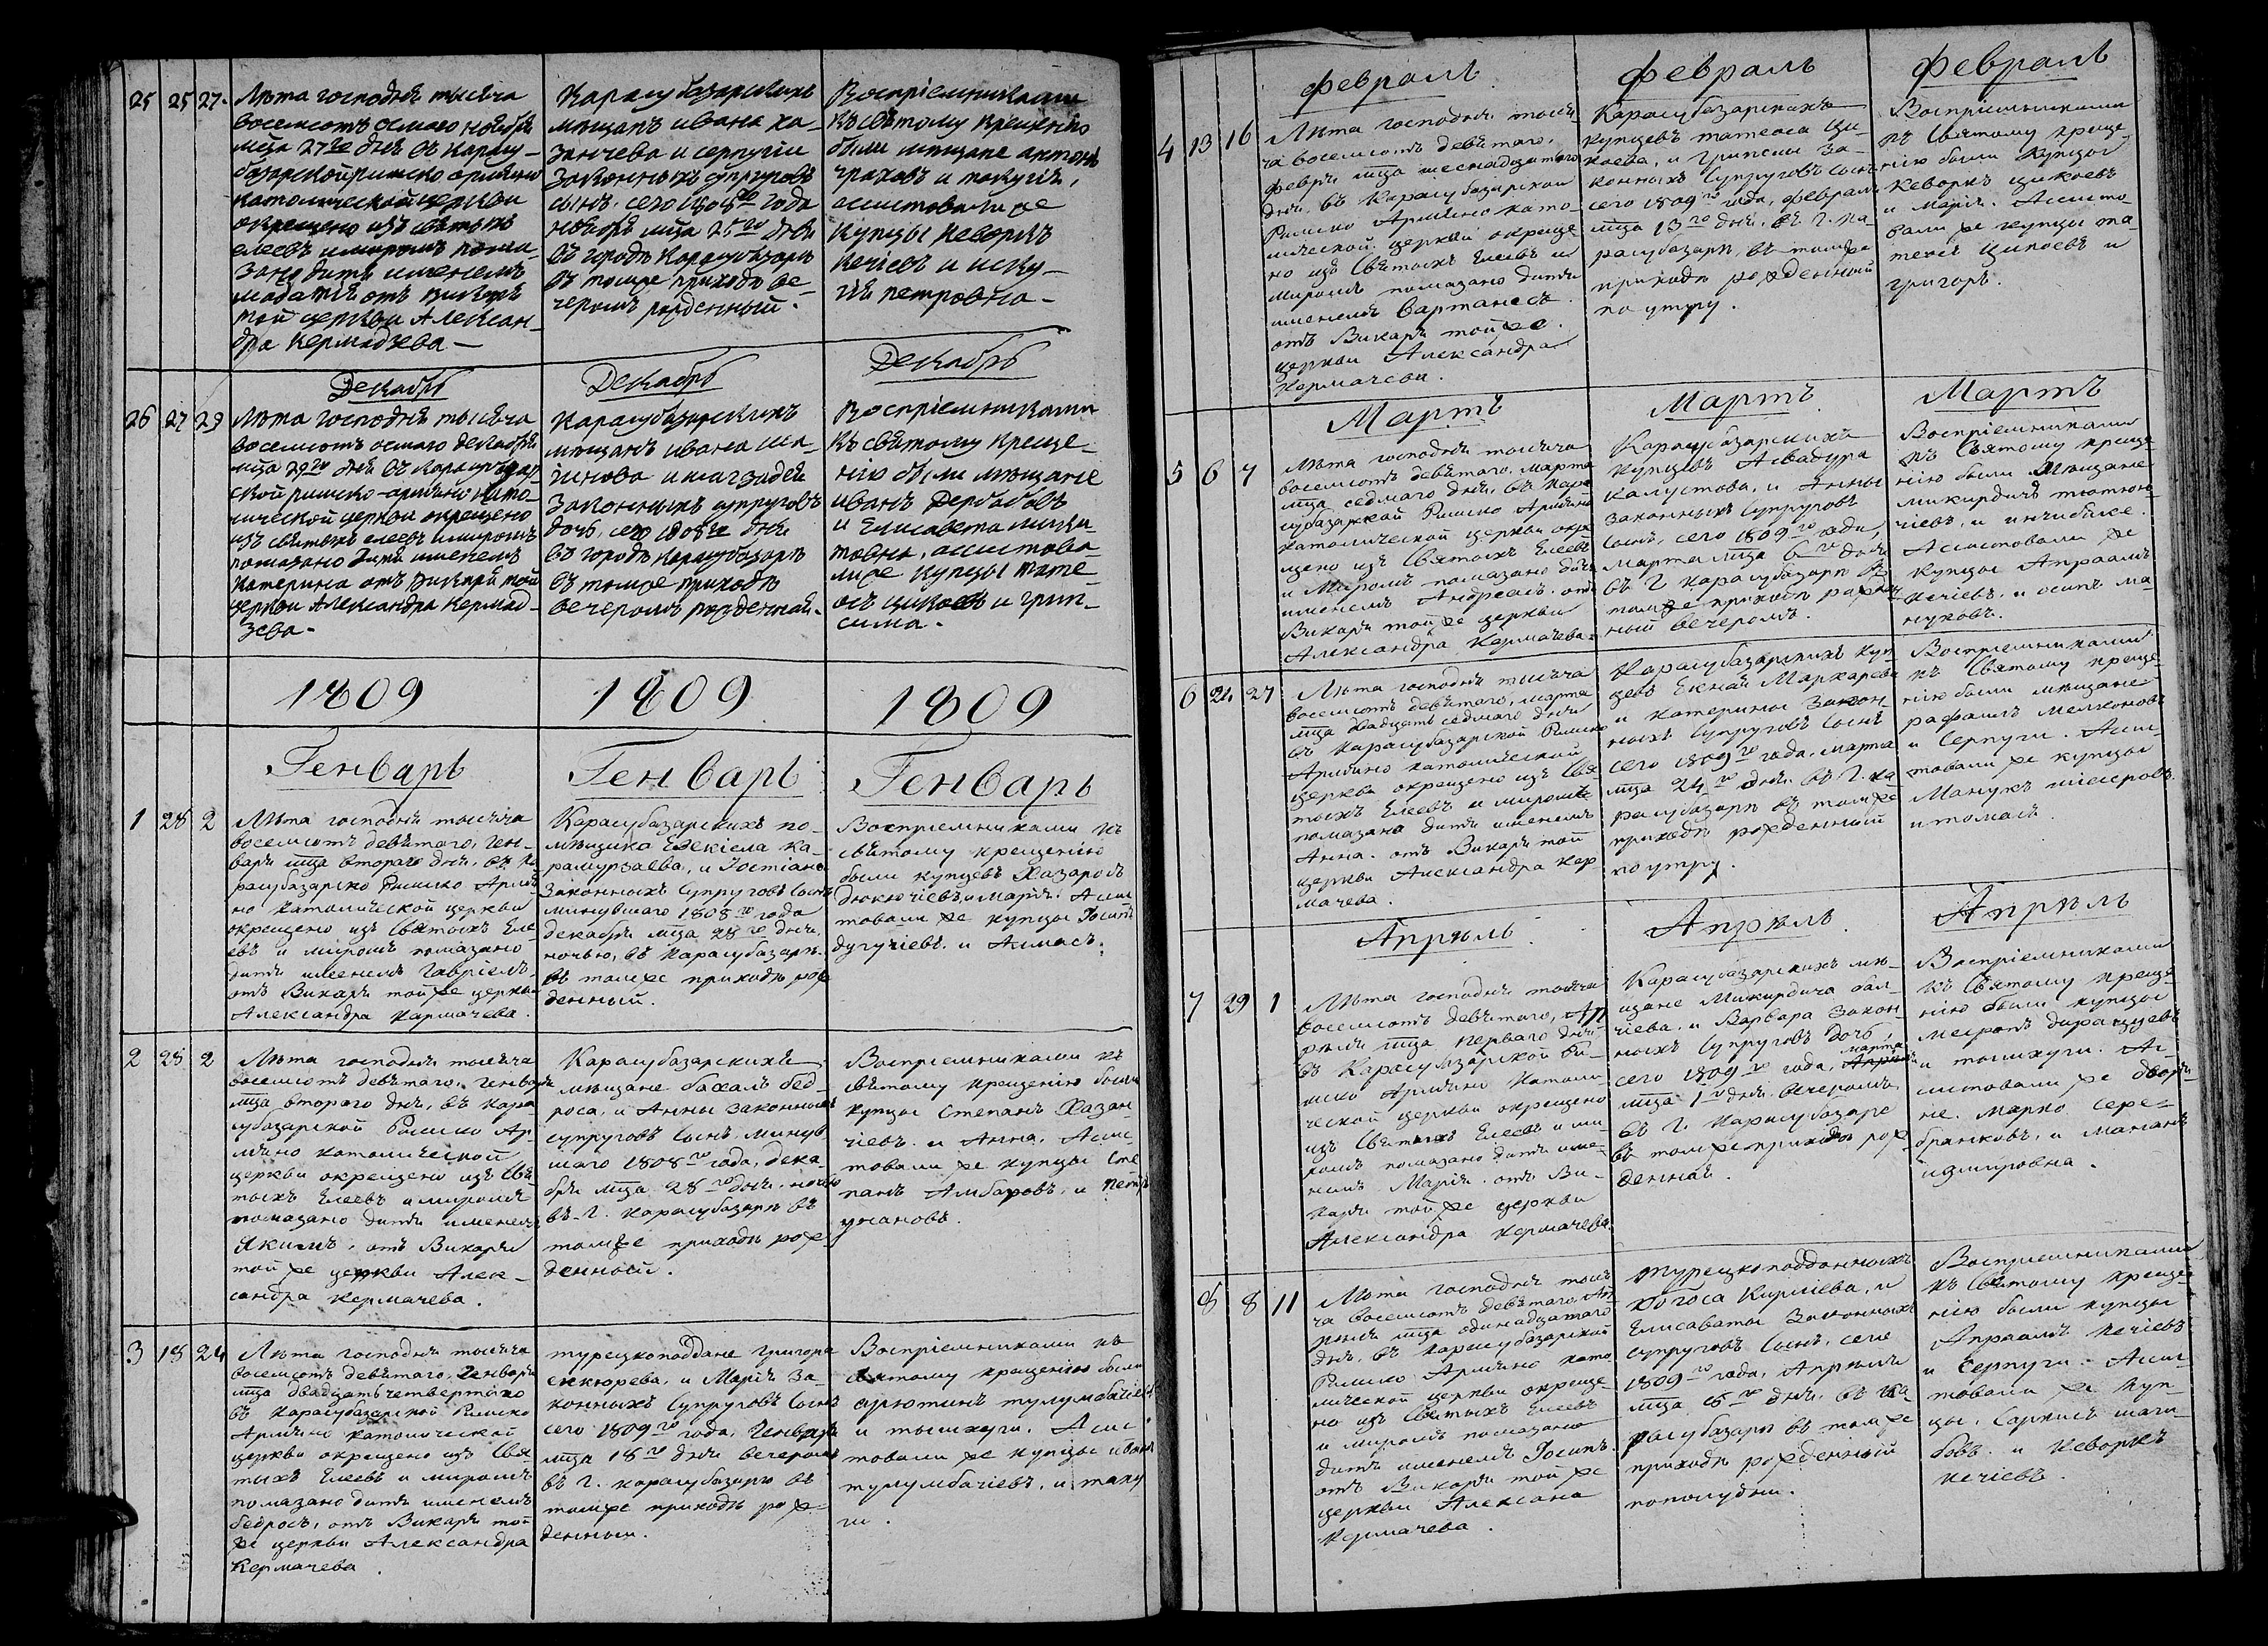 25 25 27.
Лѣта господня тысяча
восемсотъ осмаго ноября
мѣца 27го дня въ Карасу-
базарской римско армяно
католической церкви
окрещено изъ святыхъ
елеевъ и миромъ пома-
зано дитя именемъ
от викаря
той церкви Алексан-
дра Кермадзева —
Карасубазарскихъ
мѣщанъ ивана ха-
занчева и серпугіи
законныхъ супруговъ
сынъ, сего 1808го года
ноября мѣца 25го дня
въ городѣ Карасубазарѣ
въ томже приходѣ ве-
черомъ рожденный.
Воспріемниками
къ святому крещенію
были мѣщане антонъ
граховъ и
ассистовали же
купцы кеворкъ
кечіевъ и
гія петровна —
Декабрь
Декабрь
Декабрь
26 27 29
Лѣта господня тысяча
восемсотъ осмаго декабря
мѣца 29го дня въ карасубазар
ской римско-армяно като-
лической церкви окрещено
изъ святыхъ елеевъ и миромъ
помазано дитя именемъ
Катерина отъ викаря той
церкви Александра Кермад-
зева.
Карасубазарскихъ
мѣщанъ ивана
и
законныхъ супруговъ
дочь, сего 1808го дня
въ городѣ карасубазарѣ
въ томже приходѣ
вечеромъ рожденная.
Воспріемниками
къ святому креще-
нію были мѣщане
иванъ Дербабовъ
и Елисавета
ассистова
ли же купцы тате
осъ цикоевъ и грип-
сима.
1809
1809
1809
Генварь
Генварь
Генварь
1 28 2
Лѣта господня тысяча
восемсотъ девятаго, ген-
варя мѣца втораго дня, въ Ка
расубазарско Римско Армя
но католической церкви
окрещено изъ Святыхъ Еле-
евъ и миромъ помазано
дитя именемъ Гавріелъ.
отъ Викаря тойже церкви
Александра Кармачева.
Карасубазарскихъ по-
мѣщика Езекіела Ка-
рамурзаева, и Іостіана
Законныхъ Супруговъ Сынъ
минувшаго 1808го года
декабря мѣца 28го дня,
ночью, въ Карасубазарѣ.
въ томже приходѣ рож
денный.
Воспріемниками къ
святому крещенію
были купцевъ Хазаросъ
Дюкючіевъ, и Марія. Асси
товали же купцы Іосипъ
дугучіевъ. и Алмасъ.
2 28 2
Лѣта господня тысяча
восемсотъ девятаго, Генваря
мѣца втораго дня, въ Кара
субазарской Римско Ар
мяно католической
церкви окрещено изъ Свя
тыхъ Елеевъ и миромъ
помазано дитя именемъ
Якимъ, отъ Викаря
той же церкви Алек-
сандра Кермачева.
Карасубазарскихъ
мѣщане бахалъ бед-
роса, и Анны законныхъ
супруговъ Сынъ, минув
шаго 1808го года, дека-
бря мѣца 28го дня. ночью
въ. г. Карасубазарѣ въ
томже приходѣ рож
денный.
Воспріемниками къ
святому крещенію были
купцы Степанъ Хазан-
чіевъ. и Анна. Асис
товали же купцы Сте
панъ Амбаровъ, и петръ
унановъ.
3 18 24
Лѣта господня тысяча
восемсотъ девятаго, Генваря
мѣца двадцать четвертаго
въ Карасубазарской Римско
Армяно католической
церкви окрещено изъ Свя
тыхъ Елеевъ и миромъ
помазано дитя именемъ
бедросъ, отъ Викаря той
же церкви Александра
Кермачева.
турецкоподдане Григора
секюрева, и Марія За-
конныхъ Супруговъ Сынъ
сего 1809го года, Генваря
мѣца 18го дня вечеромъ
въ г. карасубазарѣ въ
томже приходѣ рож-
денный.
Воспріемниками къ
святому крещенію были
арютинъ тулумбачіевъ
и тышхуги. Асис
товали же купцы иванъ
тулумбачіевъ, и таку
ги.
февраль
февраль
февраль
4 13 16
Лѣта господня тыся
ча восемсотъ девятаго,
февря мѣца шеснадцатаго
дня, въ Карасубазарской
Римско Армяно като-
лической церкви окреще
но изъ Святыхъ Елеевъ и
миромъ помазано дитя
именемъ Вартанесъ
отъ Викаря тойже
церкви Александра
Кермачева.
Карасубазарскихъ
купцевъ татеоса Ци-
коева, и Грипсии За-
конныхъ Супруговъ Сынъ
сего 1809го года, февраля
мѣца 13го дня, въ г. Ка-
расубазарѣ, въ томже
приходѣ рожденный
по утру.
Воспріемниками
къ Святому Креще-
нію были Купцы
Кеворкъ цикоевъ
и Марія. Асисто-
вали же купцы та-
теосъ Цикоевъ и
григоръ.
Мартъ
Мартъ
Мартъ
5 6 7
Лѣта господня тысяча
восемсотъ девятаго, Марта
мѣца седмаго дня, въ Кара
субазарской Римско Армяно
католической церкви окре
щено изъ Святыхъ Елеевъ
и Миромъ помазано дитя
именемъ Андреасъ. отъ
Викаря тойже церкви
Александра Кермачева.
Карасубазарскихъ
купцевъ Асвадура
Калустова, и Анны
законныхъ Супруговъ
Сынъ, сего 1809го года,
Марта мѣца 6го дня
въ г Карасубазарѣ въ
томже приходѣ рожден
ный вечеромъ.
Воспріемниками
къ Святому креще-
нію были Мѣщане
микирдичъ тютюн-
чіевъ, и инчибике.
Асистовали же
купцы Апраамъ
кечіевъ, и осипъ ма-
нуковъ.
6 24 27
Лѣта господня тысяча
восемсотъ девятаго, марта
мѣца двадцать седмаго дня
въ Карасубазарской Римско
Армяно католической
церкви окрещено изъ Свя
тыхъ Елеевъ и миромъ
помазана дитя именемъ
Анна. отъ Викаря той
церкви Александра Кер
мачева.
Карасубазарскихъ куп
цевъ Екнай Маркарева
и Катерины Закон-
ныхъ Супруговъ Сынъ
сего 1809го года, Марта
мѣца 24го дня. въ г. ка
расубазарѣ въ томже
приходѣ рожденный
по утру.
Воспріемниками
къ Святому креще-
нію были мѣщане
рафаилъ мелконовъ
и Серпуги. Асис-
товали же купцы
Манукъ
и томасъ.
Апрѣль
Апрѣль
Апрѣль
7 29 1
Лѣта господня тысяча
восемсотъ девятаго, Ап
рѣля мѣца перваго дня
въ Карасубазарской Ри-
мско Армяно Католи-
ческой церкви окрещено
изъ Святыхъ Елеевъ и ми-
ромъ помазано дитя име-
немъ Марія. отъ Ви-
каря той же церкви
Александра Кермачева.
Карасубазарскихъ мѣ-
щане Микирдича бал-
чіева. и Варвара Закон-
ныхъ Супруговъ дочь,
марта
сего 1809го года, Апрѣля
мѣца 1го дня. вечеромъ
въ г. Карасубазаре
въ томже приходѣ рож
денная.
Воспріемниками
къ Святому креще-
нію были купцы
месропъ дарагцевъ
и тышхуги. Ас-
систовали же дворя-
не. Марко Сере-
бряковъ, и Мананъ
измировна.
8 8 11
Лѣта господня тыся
ча восемсотъ девятаго, Ап
рѣля мѣца одинадцатаго
дня, въ карасубазарской
Римско Армяно като
лической церкви окреще-
но изъ Святыхъ Елеевъ
и миромъ помазано
дитя именемъ Іосипъ.
отъ Викаря той же
церкви Алексана
Кермачева.
турецкоподданныхъ
погоса Киркіева, и
Елисаветы Законныхъ
Супруговъ Сынъ, сего
1809го года, Апрѣля
мѣца 8го дня. въ Ка
расубазарѣ въ томже
приходѣ рожденный
пополудни.
Воспріемниками
къ Святому креще
нію были купцы
Апраамъ кечіевъ
и Серпуги. Асис-
товали же куп-
цы. Саркисъ шаги-
бовъ. и Кеворкъ
кечіевъ.